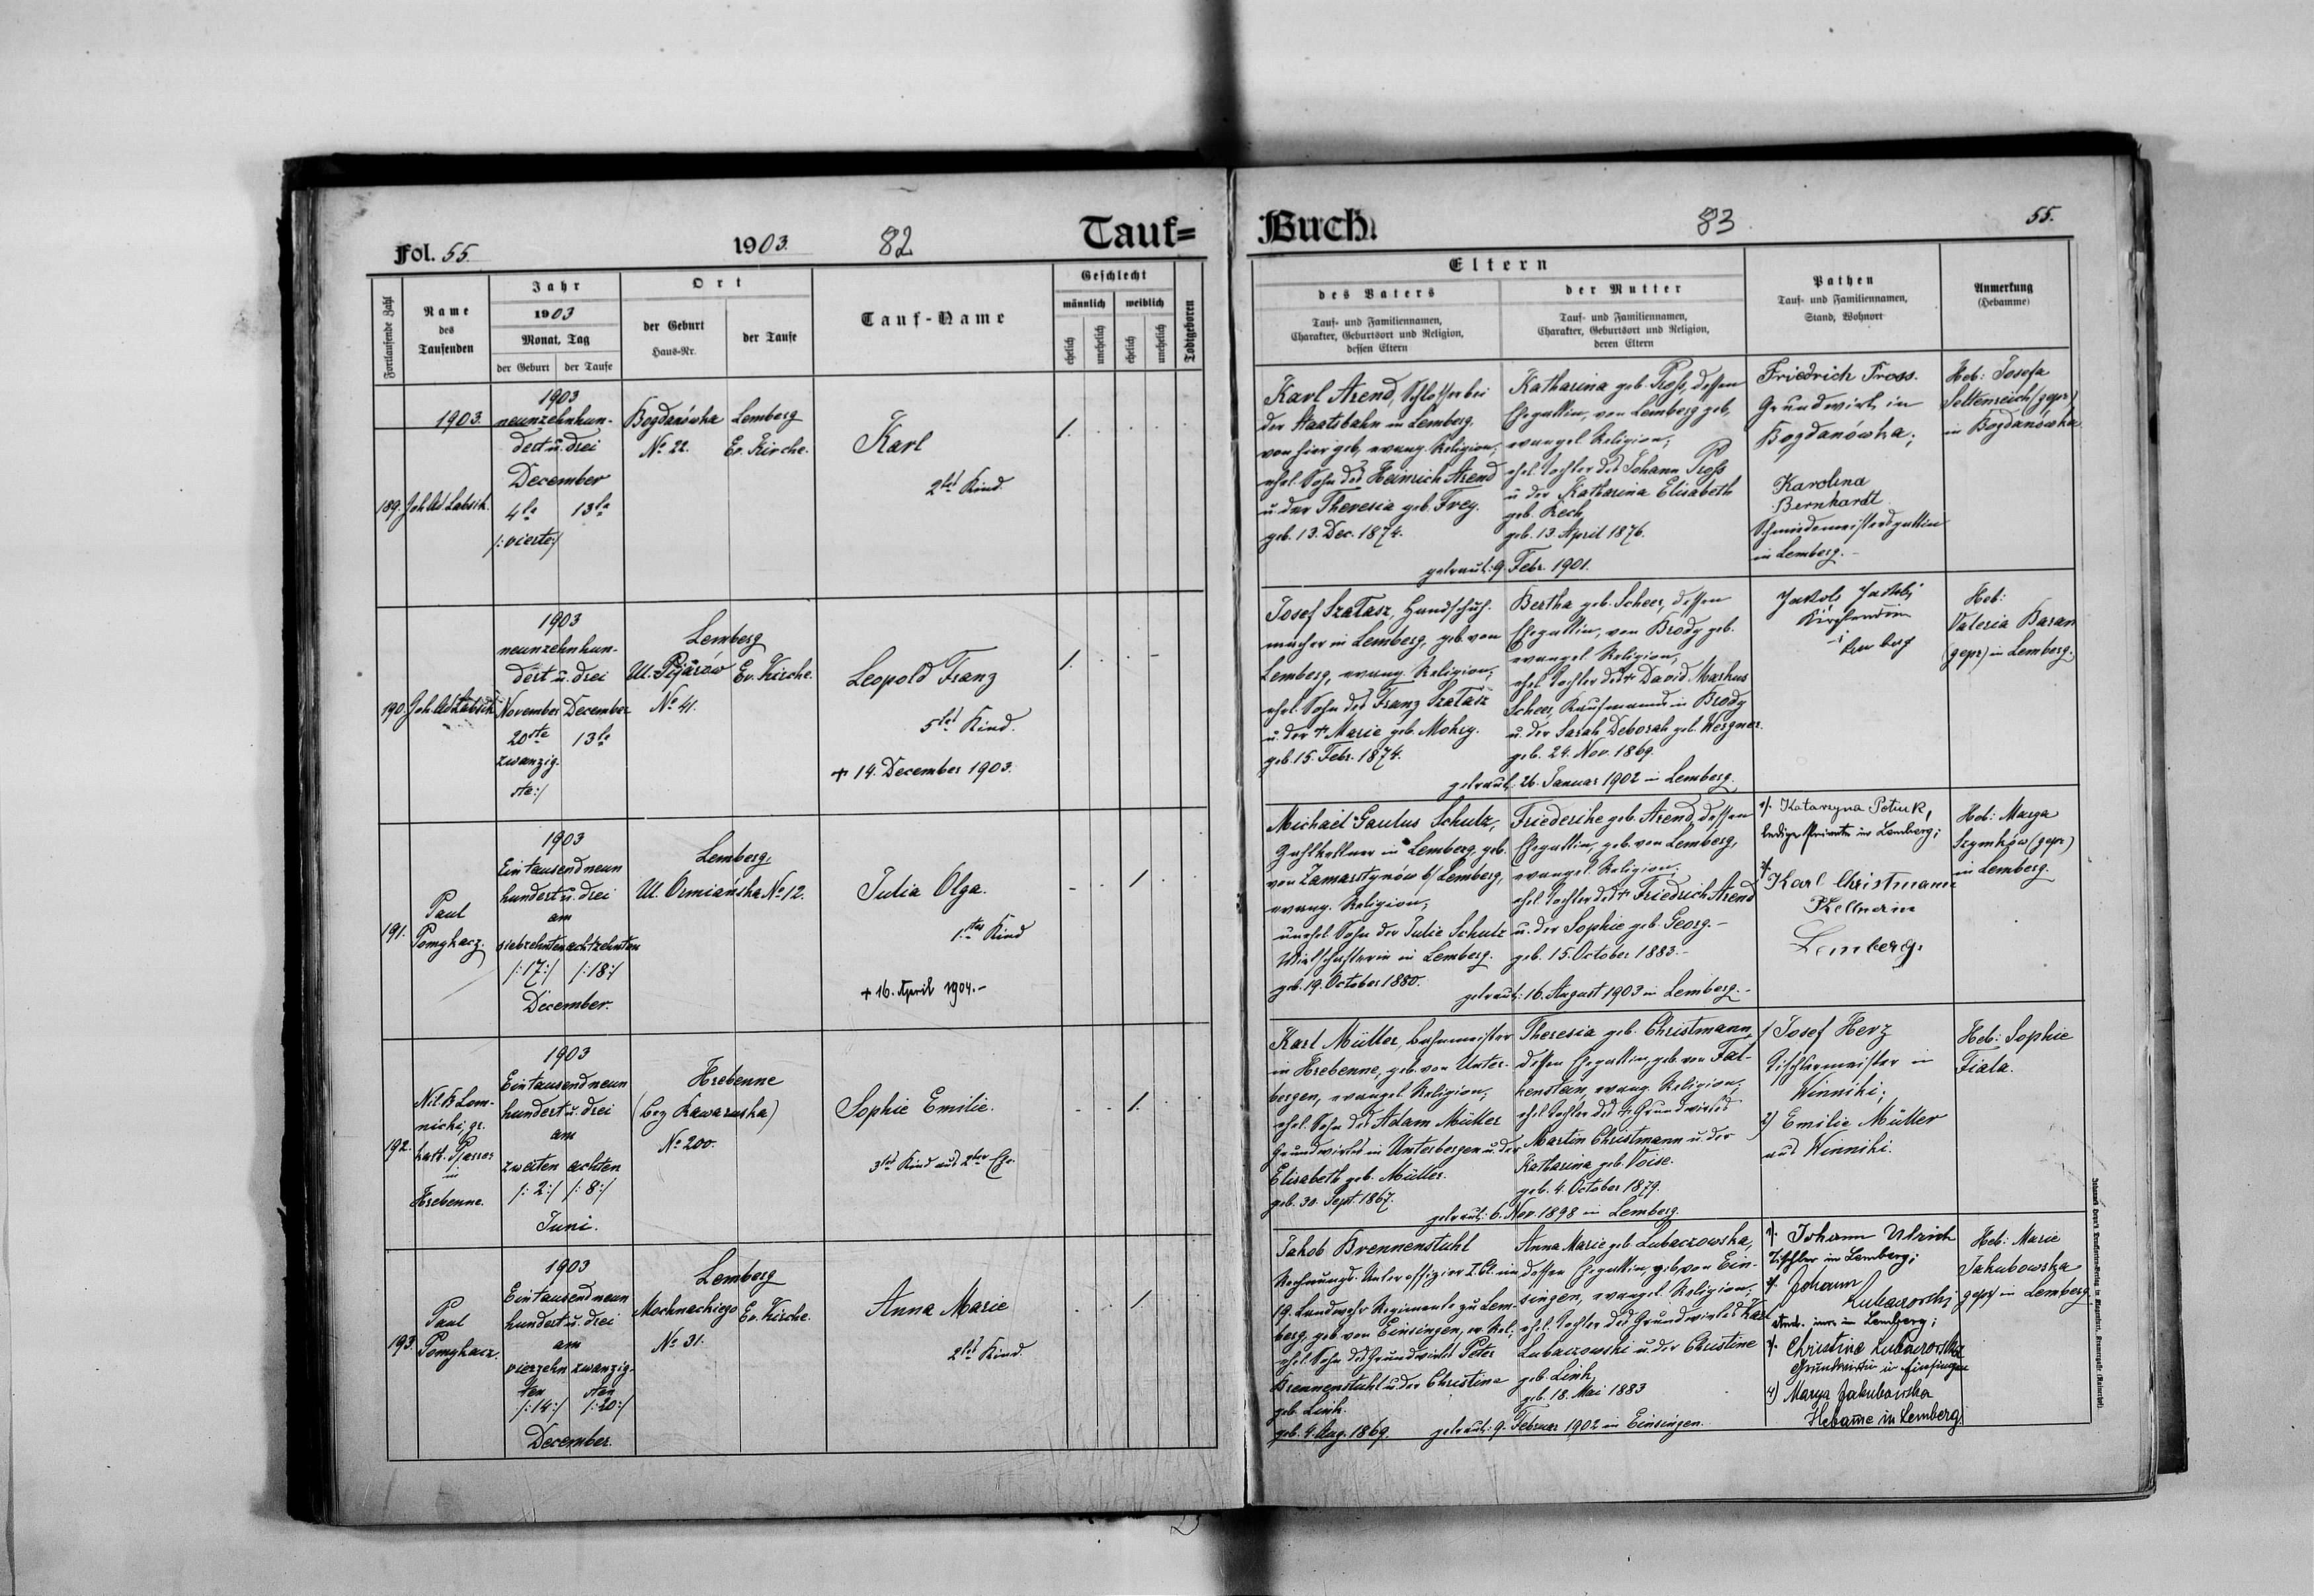 Fol. 55.
1903.
82
Tauf=
Fortlaufende Zahl
Name
des
Taufenden
Jahr
1903
Monat, Tag
der Geburt
der Taufe
Ort
der Geburt
Haus-Nr.
der Taufe
Tauf-Name
Geschlecht
männlich
weiblich
ehelich
unehelich
ehelich
unehelich
Todtgeboren
1903.
189.
Joh. Ad. Labsik.
1903
neunzehnhun-
dert u. drei
December
4te 13te
/:vierte:/
Bogdanówka
No 22.
Lemberg
Ev. Kirche.
Karl
2tes Kind.
1.
190.
Joh. Ad. Labsik
1903
neunzehnhun-
dert u. drei
November December
20ste 13te
zwanzig-
ste:/
Lemberg
Ul. Pijarów Ev. Kirche.
No 41.
Leopold Franz
5tes Kind.
+ 14. December 1903.
1.
191.
Paul
Pomykacz.
1903
Eintausendneun
hundert u. drei
am
siebzehnten achtzehnten
/:17:/ /:18:/
December.
Lemberg,
Ul. Ormiańska No 12.
Julia Olga.
1.tes Kind
+ 16. April 1904.-
1
192.
Nil. K. Lom-
nicki, gr.
kath. Pfarrer
in
Hrebenne.
1903
Eintausendneun
hundert u. drei
am
zweiten achten
/:2:/ /:8:/
Juni.
Hrebenne
(bez Rawaruska)
No 200.
Sophie Emilie.
3tes Kind aus 2ter Ehe.
1.
193.
Paul
Pomykacz.
1903
Eintausendneun
hundert u. drei
am
vierzehn- zwanzig-
ten sten
/:14:/ /:20:/
December.
Lemberg
Mochnackiego Ev. Kirche.
No 31.
Anna Marie
2tes Kind.
1.
Buch.
83.
55.
Eltern
des Vaters
Tauf- und Familiennamen,
Charakter, Geburtsort und Religion,
dessen Eltern
der Mutter
Tauf- und Familiennamen,
Charakter, Geburtsort und Religion,
deren Eltern
Pathen
Tauf- und Familiennamen,
Stand, Wohnort
Anmerkung
(Hebamme)
Karl Arend, Schlosser bei
der Staatsbahn in Lemberg,
von hier geb, evang. Religion,
ehel. Sohn des Heinrich Arend
u. der Theresia geb. Frey.
geb. 13. Dec. 1874.
Katharina geb. Pross, dessen
Ehegattin, von Lemberg geb,
evangel. Religion,
ehel. Tochter des Johann Pross
u. der Katharina Elisabeth
geb. Rech
geb. 13. April 1876.
getraut: 9. Febr. 1901.
Friedrich Pross.
Grundwirth in
Bogdanówka;
Karolina
Bernhardt.
Schmiedemeistersgattin
in Lemberg.-
Heb: Josefa
Seltenreich (gepr)
in Bogdanówka.
Josef Szałasz, Handschuh-
macher in Lemberg, geb. von
Lemberg, evang. Religion,
ehel. Sohn des Franz Szałasz
u. der + Marie geb. Mokry.
geb. 15. Febr. 1874.
Bertha geb. Scheer, dessen
Ehegattin, von Brody geb.
evangel. Religion,
ehel. Tochter des + David Markus
Scheer, Kaufmanns in Brody
u. der Sarah Deborah geb. Wergner.
geb. 24. Nov. 1869.
getraut: 26. Januar 1902 in Lemberg.
Jakob
Lemberg
Heb:
Valeria Baran
(gepr) in Lemberg.
Michael Paulus Schulz,
Zahlkellner in Lemberg, geb.
von Zamarstynów b/Lemberg,
evang. Religion,
unehel. Sohn der Julie Schulz
Wirtschafterin in Lemberg.
geb. 19. October 1880.
Friederike geb. Arend, dessen
Ehegattin, geb. von Lemberg,
evangel. Religion,
ehel. Tochter des + Friedrich Arend
u. der Sophie geb. Georg.-
geb. 15. October 1883.-
getraut: 16. August 1903 in Lemberg.-
1/. Katarzyna
ledige Private in Lemberg;
2/.
Karl Christmann
Lemberg.
Heb: Marya
Szymków (gepr)
in Lemberg.
Karl Müller, Bahnmeister
in Hrebenne, geb. von Unter-
bergen, evangel. Religion,
ehel. Sohn des Adam Müller
Grundwirtes in Unterbergen u. der
Elisabeth geb. Müller.
geb. 30. Sept. 1867.
Theresia geb. Christmann,
dessen Ehegattin, geb. von Fal-
kenstein, evang. Religion,
ehel. Tochter des + Grundwirtes
Martin Christmann u. der
Katharina geb. Voise.
geb. 4. October 1879.
getraut: 6. Nov. 1898 in Lemberg.
1) Josef Herz
Tischlermeister in
Winniki;
2) Emilie Müller
aus Winniki.
Heb: Sophie
Fiala.
Jakob Brennenstuhl
Rechnungs-Unteroffizier I. Cl. im
19. Landwehr Regimente zu Lem-
berg, geb. von Einsingen, ev. Rel,
ehel. Sohn des Grundwirtes Peter
Brennenstuhl u. der Christine
geb. Link.
geb. 4. Aug. 1869.
Anna Marie geb. Lubaczowska,
dessen Ehegattin, geb. von Ein-
singen, evangel. Religion,
ehel. Tochter des Grundwirtes Karl
Lubaczowski u. der Christine
geb. Link,
geb. 18. Mai 1883
getraut: 9. Februar 1902 in Einsingen.
1/. Johann Ulrich
Tischler in Lemberg;
2/. Johann
Lubaczowski
in Lemberg;
3/. Christine Lubaczowska
Grundwirtin in Einsingen
4) Marya Jakubowska
Hebame in Lemberg.
Heb: Marie
Jakubowska
gepr) in Lemberg.